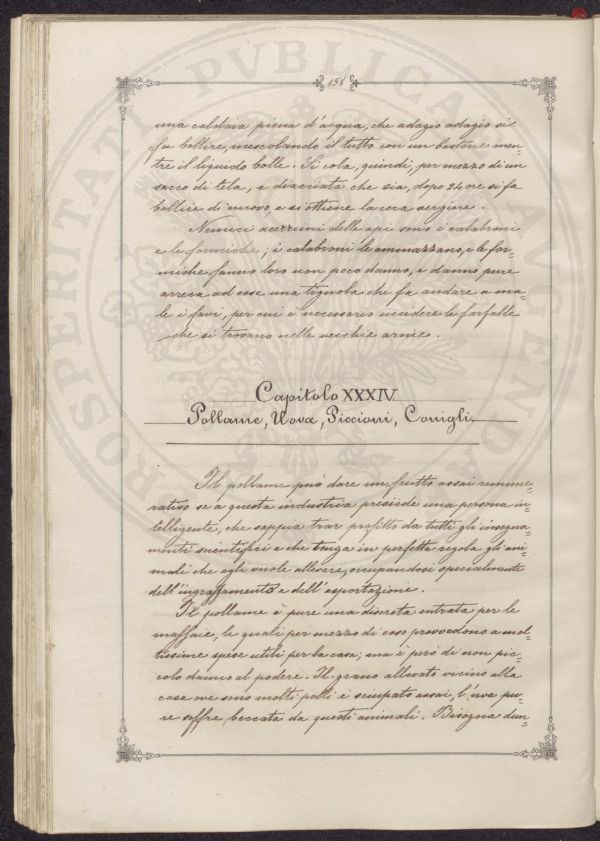 158
una caldaia piena d'acqua, che adagio adagio si
fa bollire, mescolando il tutto con un bastone men=
tre il liquido bolle. Si cola, quindi, per mezzo di un
sacco di tela, e diacciata che sia, dopo 24 ore si fa
bollire di nuovo e si ottiene la cera vergine.
Nemici acerrimi delle api sono i calabroni
e le formiche; i calabroni le ammazzano, e le for=
miche fanno loro non poco danno, e danno pure
arreca ad esse una tignola che fa andare a ma=
le i favi, per cui è necessario uccidere le farfalle
che si trovano nelle vecchie arnie.
Capitolo XXXIV
Pollame, Uova, Piccioni, Conigli.
Il pollame può dare un frutto assai remune=
rativo se a questa industria presiede una persona in=
telligente, che sappia trar profitto da tutti gli insegna=
menti scientifici e che tenga in perfetta regola gli ani=
mali che egli vuole allevare, occupandosi specialmente
dell'ingrassamento e dell'esportazione.
Il pollame è pure una discreta entrata per le
massaie, le quali per mezzo di esso provvedono a mol=
tissime spese utili per la casa; ma è però di non pic=
colo danno al podere. Il grano allevato vicino alla
casa ove sono molti polli è sciupato assai, l'uva pu=
re soffre beccata da questi animali. Bisogna dun=
PROSPERITATI PVBLICAE AVGENDAE